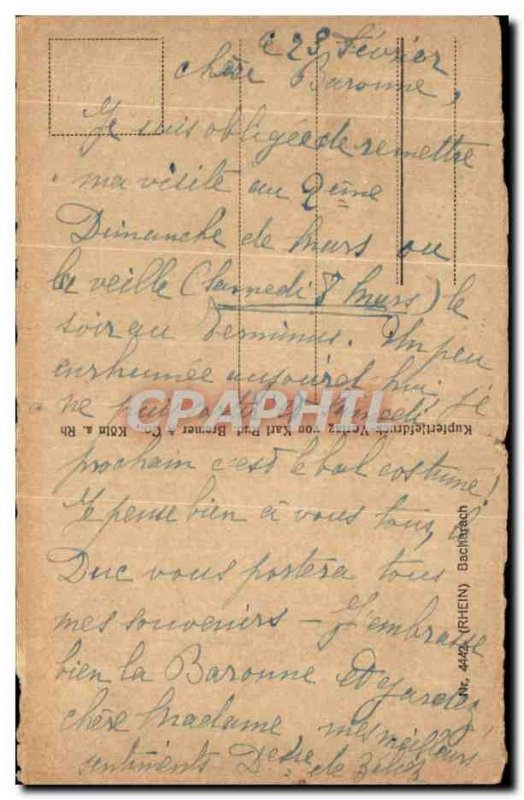 ce 28 Février
chère Baronne,
Je suis obligée de remettre
ma visite au 2ème
Dimanche de Mars ou
la veille (Samedi 8 Mars) le
soir au Terminus. Un peu
enrhumée aujourd'hui je
ne puis sortir et Samedi
prochain c'est le bal costumé!
Je pense bien à vous tous, le
Duc vous portera tous
mes souvenirs — J'embrasse
bien la Baronne et gardez
chère Madame mes meilleurs
sentiments
CPAPHIL
Kupfertiefdruck-Verlag von Karl Rud. Bremer & Co., Köln a. Rh
Nr. 4442 (RHEIN) Bacharach